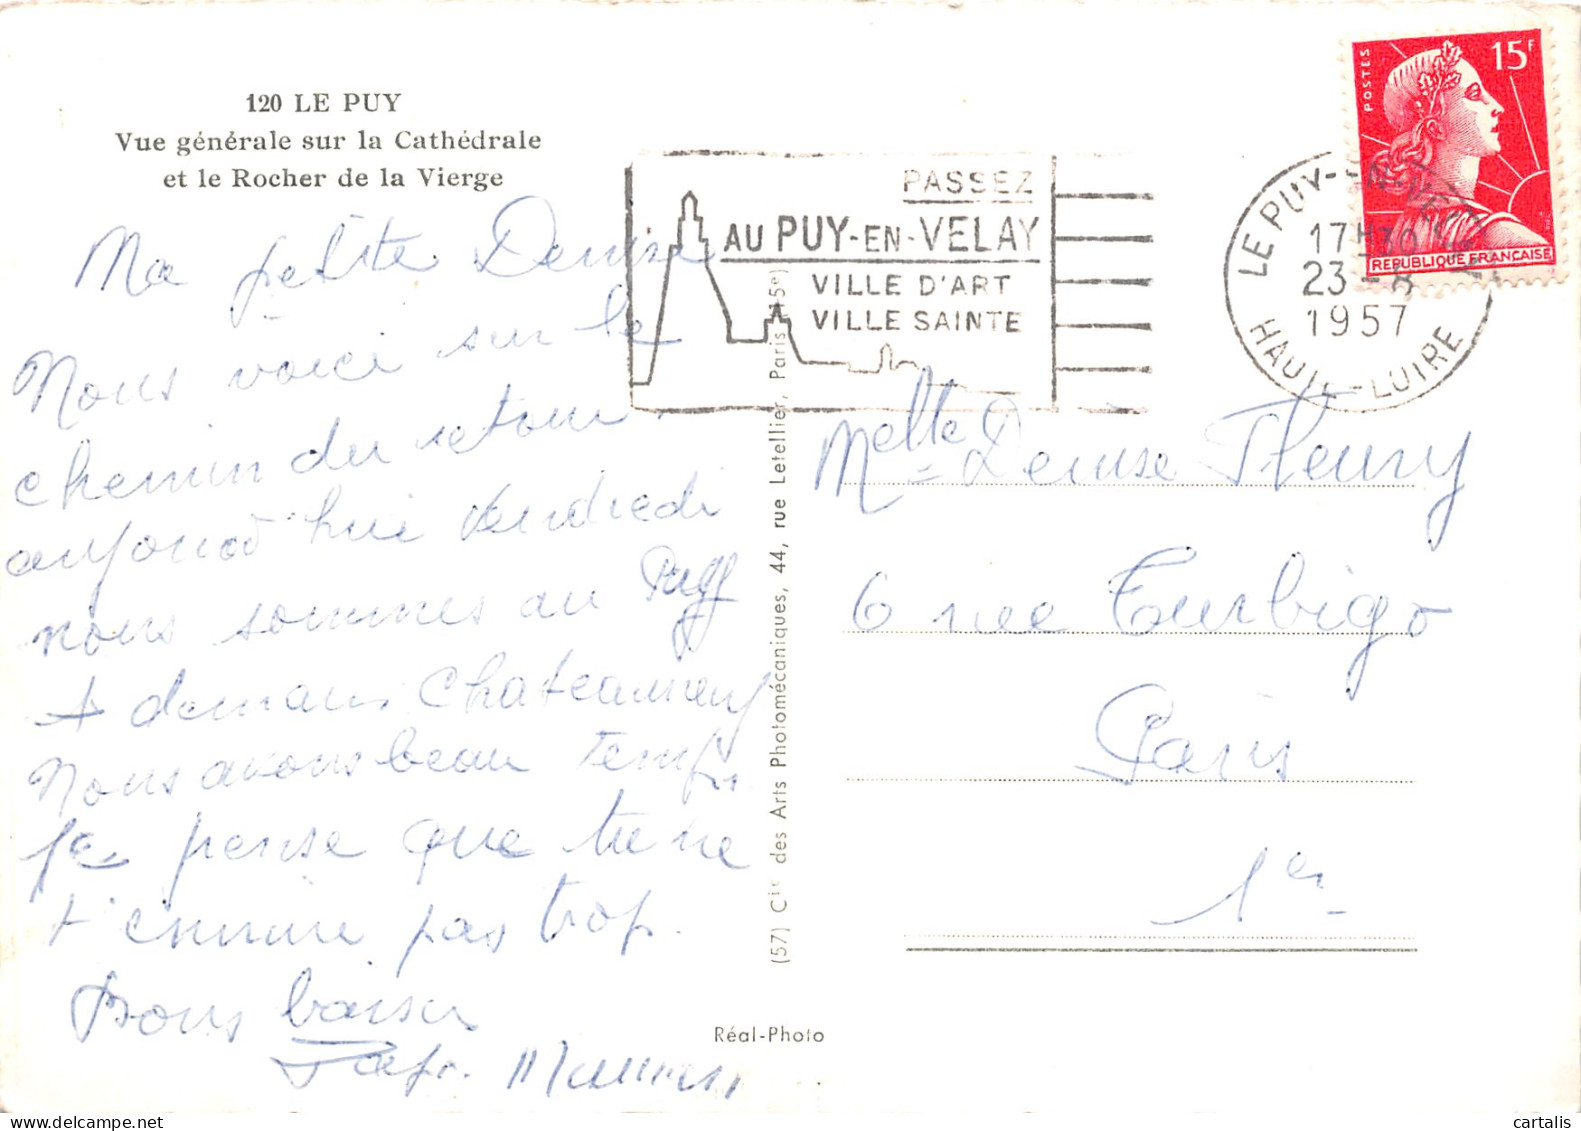 120 LE PUY
Vue générale sur la Cathédrale
et le Rocher de la Vierge
Ma petite Denise
Nous voici sur le
chemin du retour
aujourd hui Vendredi
nous sommes au Puy
+ demain Chateauneuf
Nous avons beau temps
Je pense que tu ne
t'ennuie pas trop.
Bons baisers
Papa. Maman
PASSEZ
AU PUY-EN-VELAY
VILLE D'ART
VILLE SAINTE
LE PUY-EN-VELAY
17H30
23 - 8
1957
HAUTE-LOIRE
POSTES
15F
REPUBLIQUE FRANÇAISE
Melle Denise Fleury
6 rue Turbigo
Paris
1er
(57) Cie des Arts Photomécaniques, 44, rue Letellier, Paris (15e)
Réal-Photo
cartalis